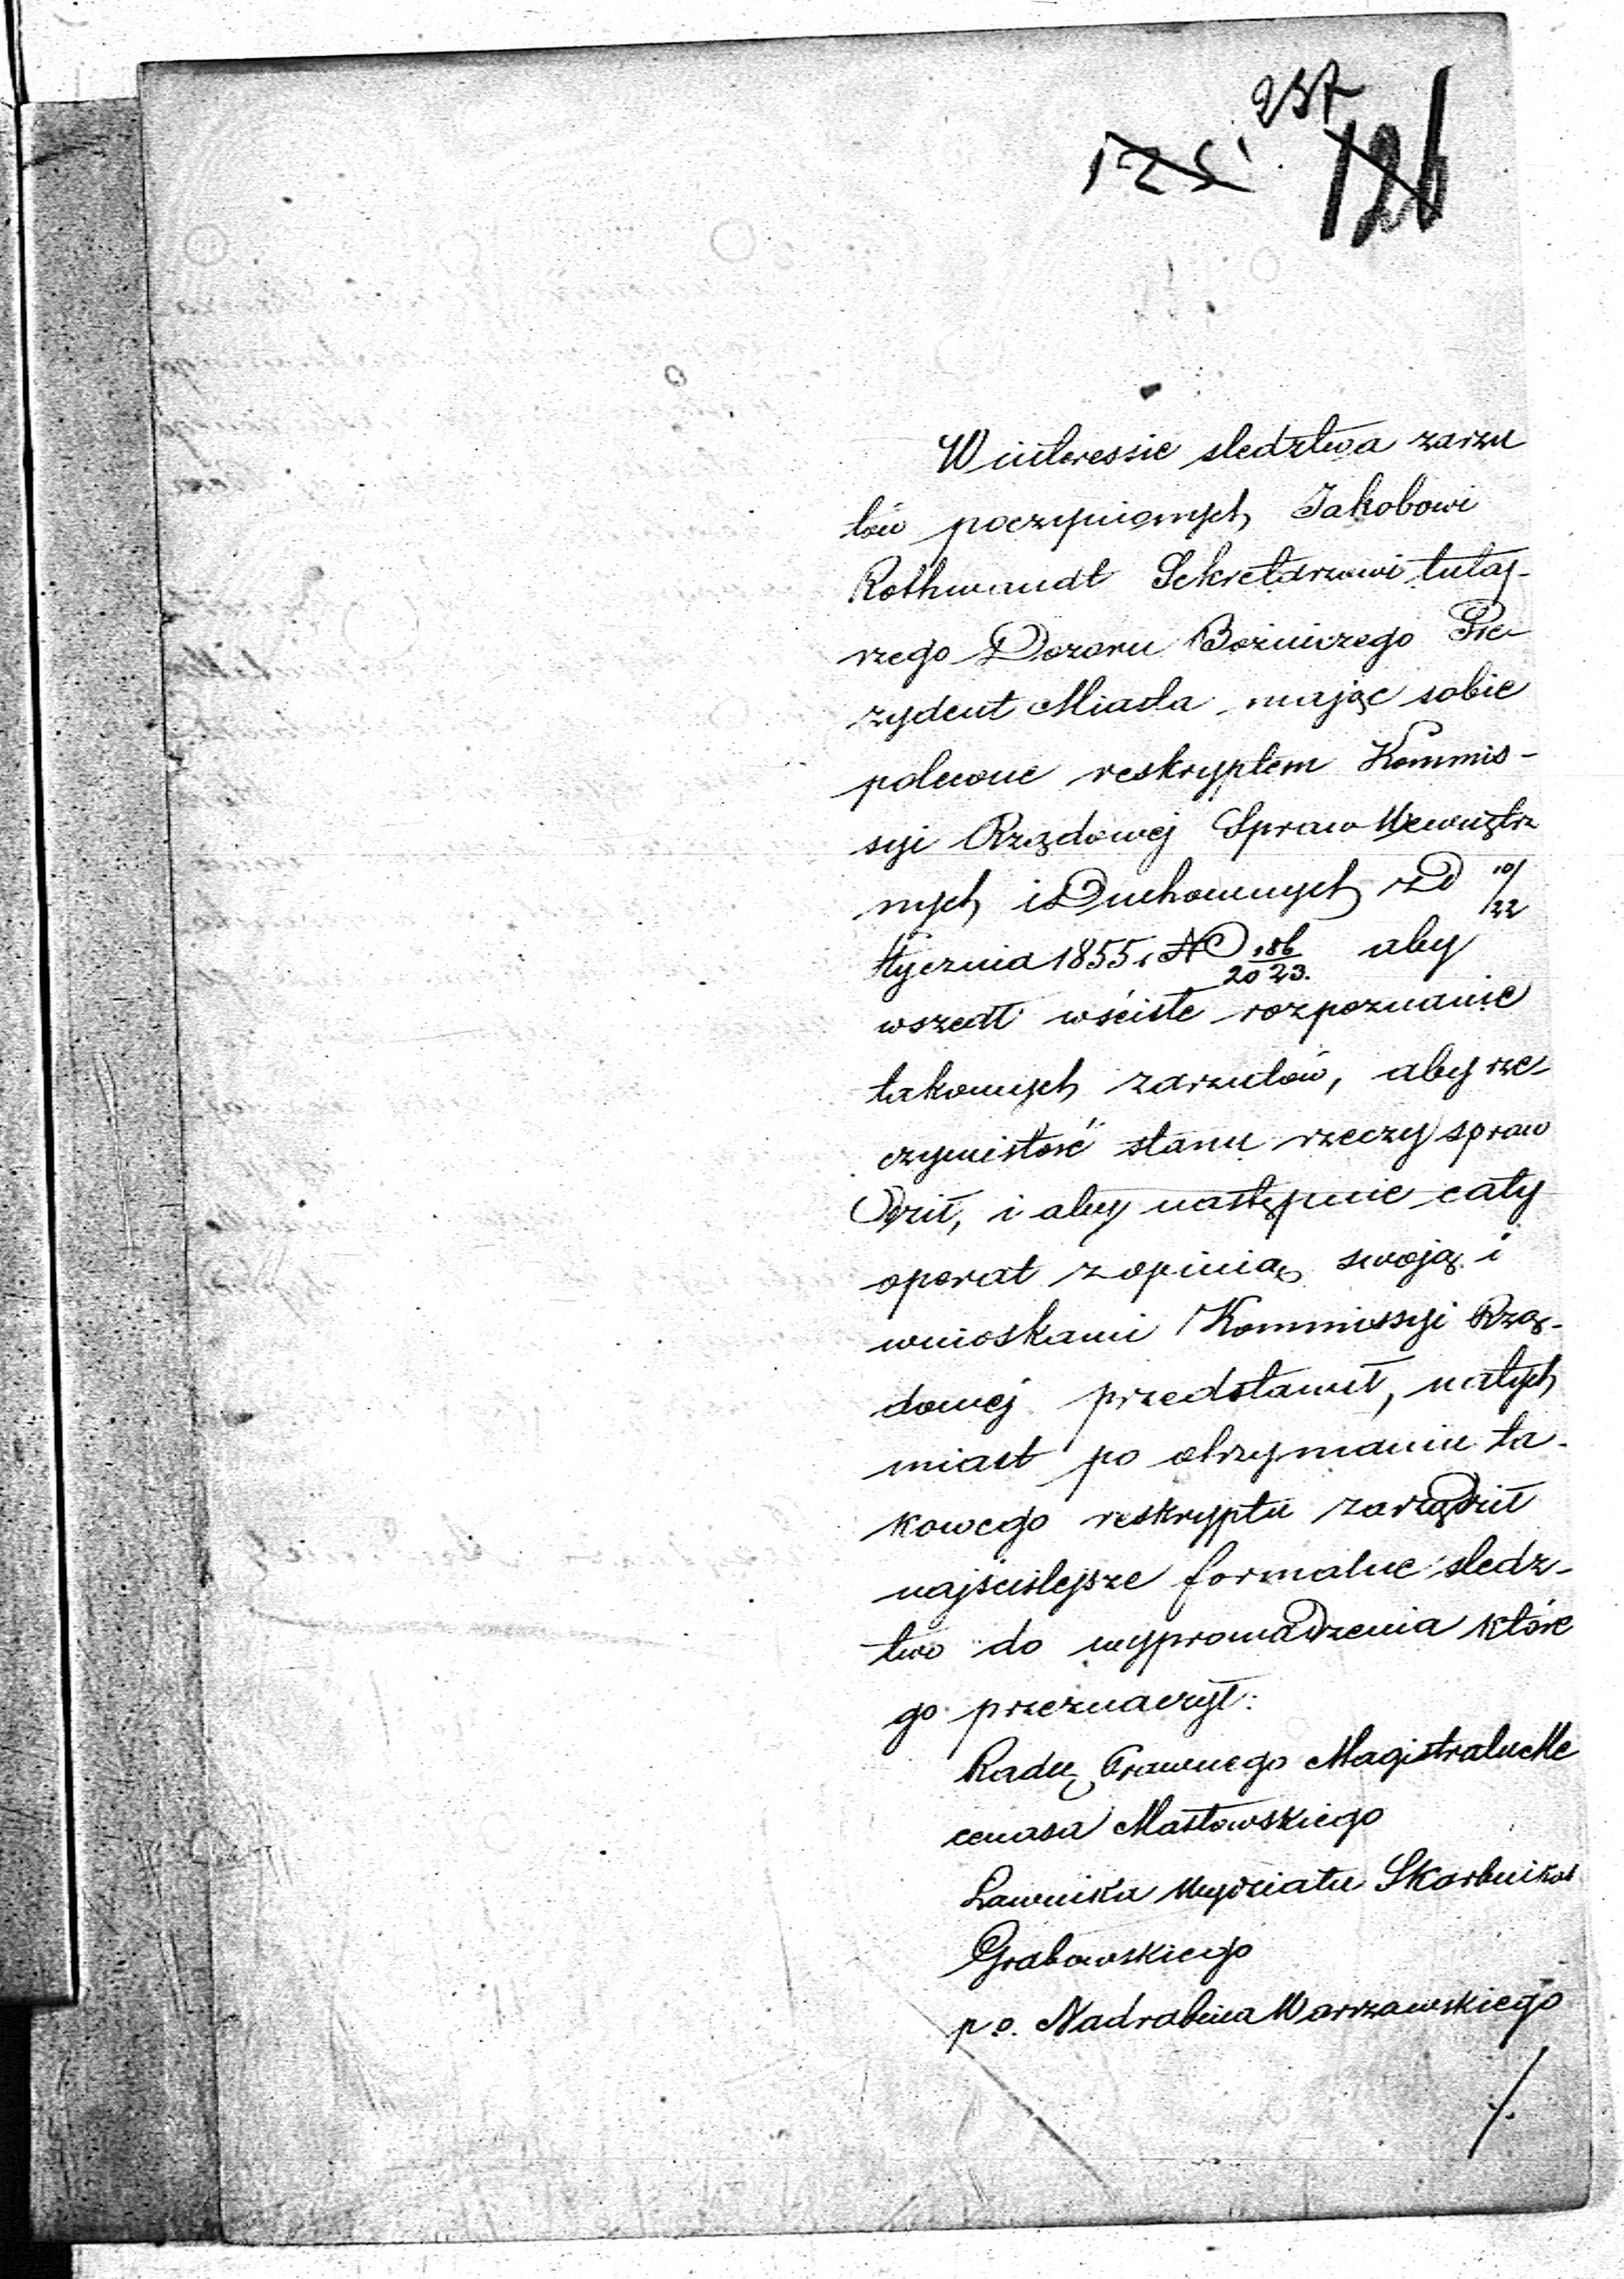 237
125 126
W interessie sledztwa zarzu
tów poczynionych Jakobowi
Rothwandt Sekretarzowi tutaj-
szego Dozoru Bożniczego Pre
zydent Miasta mając sobie
polecone reskryptem Kommis-
syi Rządowej Spraw Wewnętrz
nych i Duchownych z D 10/22
Stycznia 1855 r. N 186/2023. aby
wszedł w ścisłe rozpoznanie
takowych zarzutów, aby rze
czywistość stanu rzeczy spraw
dził, i aby następnie cały
operat z opinią swoją i
wnioskami Kommissyi Rzą-
dowej przedstawił, natych
miast po otrzymaniu ta-
kowego reskryptu zarządził
najściślejsze formalne śledz-
two do wyprowadzenia które
go przeznaczył:
Radcę Prawnego Magistratu Me
cenasa Masłowskiego
Ławnika Wydziału Skarbnika
Grabowskiego
p.o. Nadrabina Warszawskiego
./.